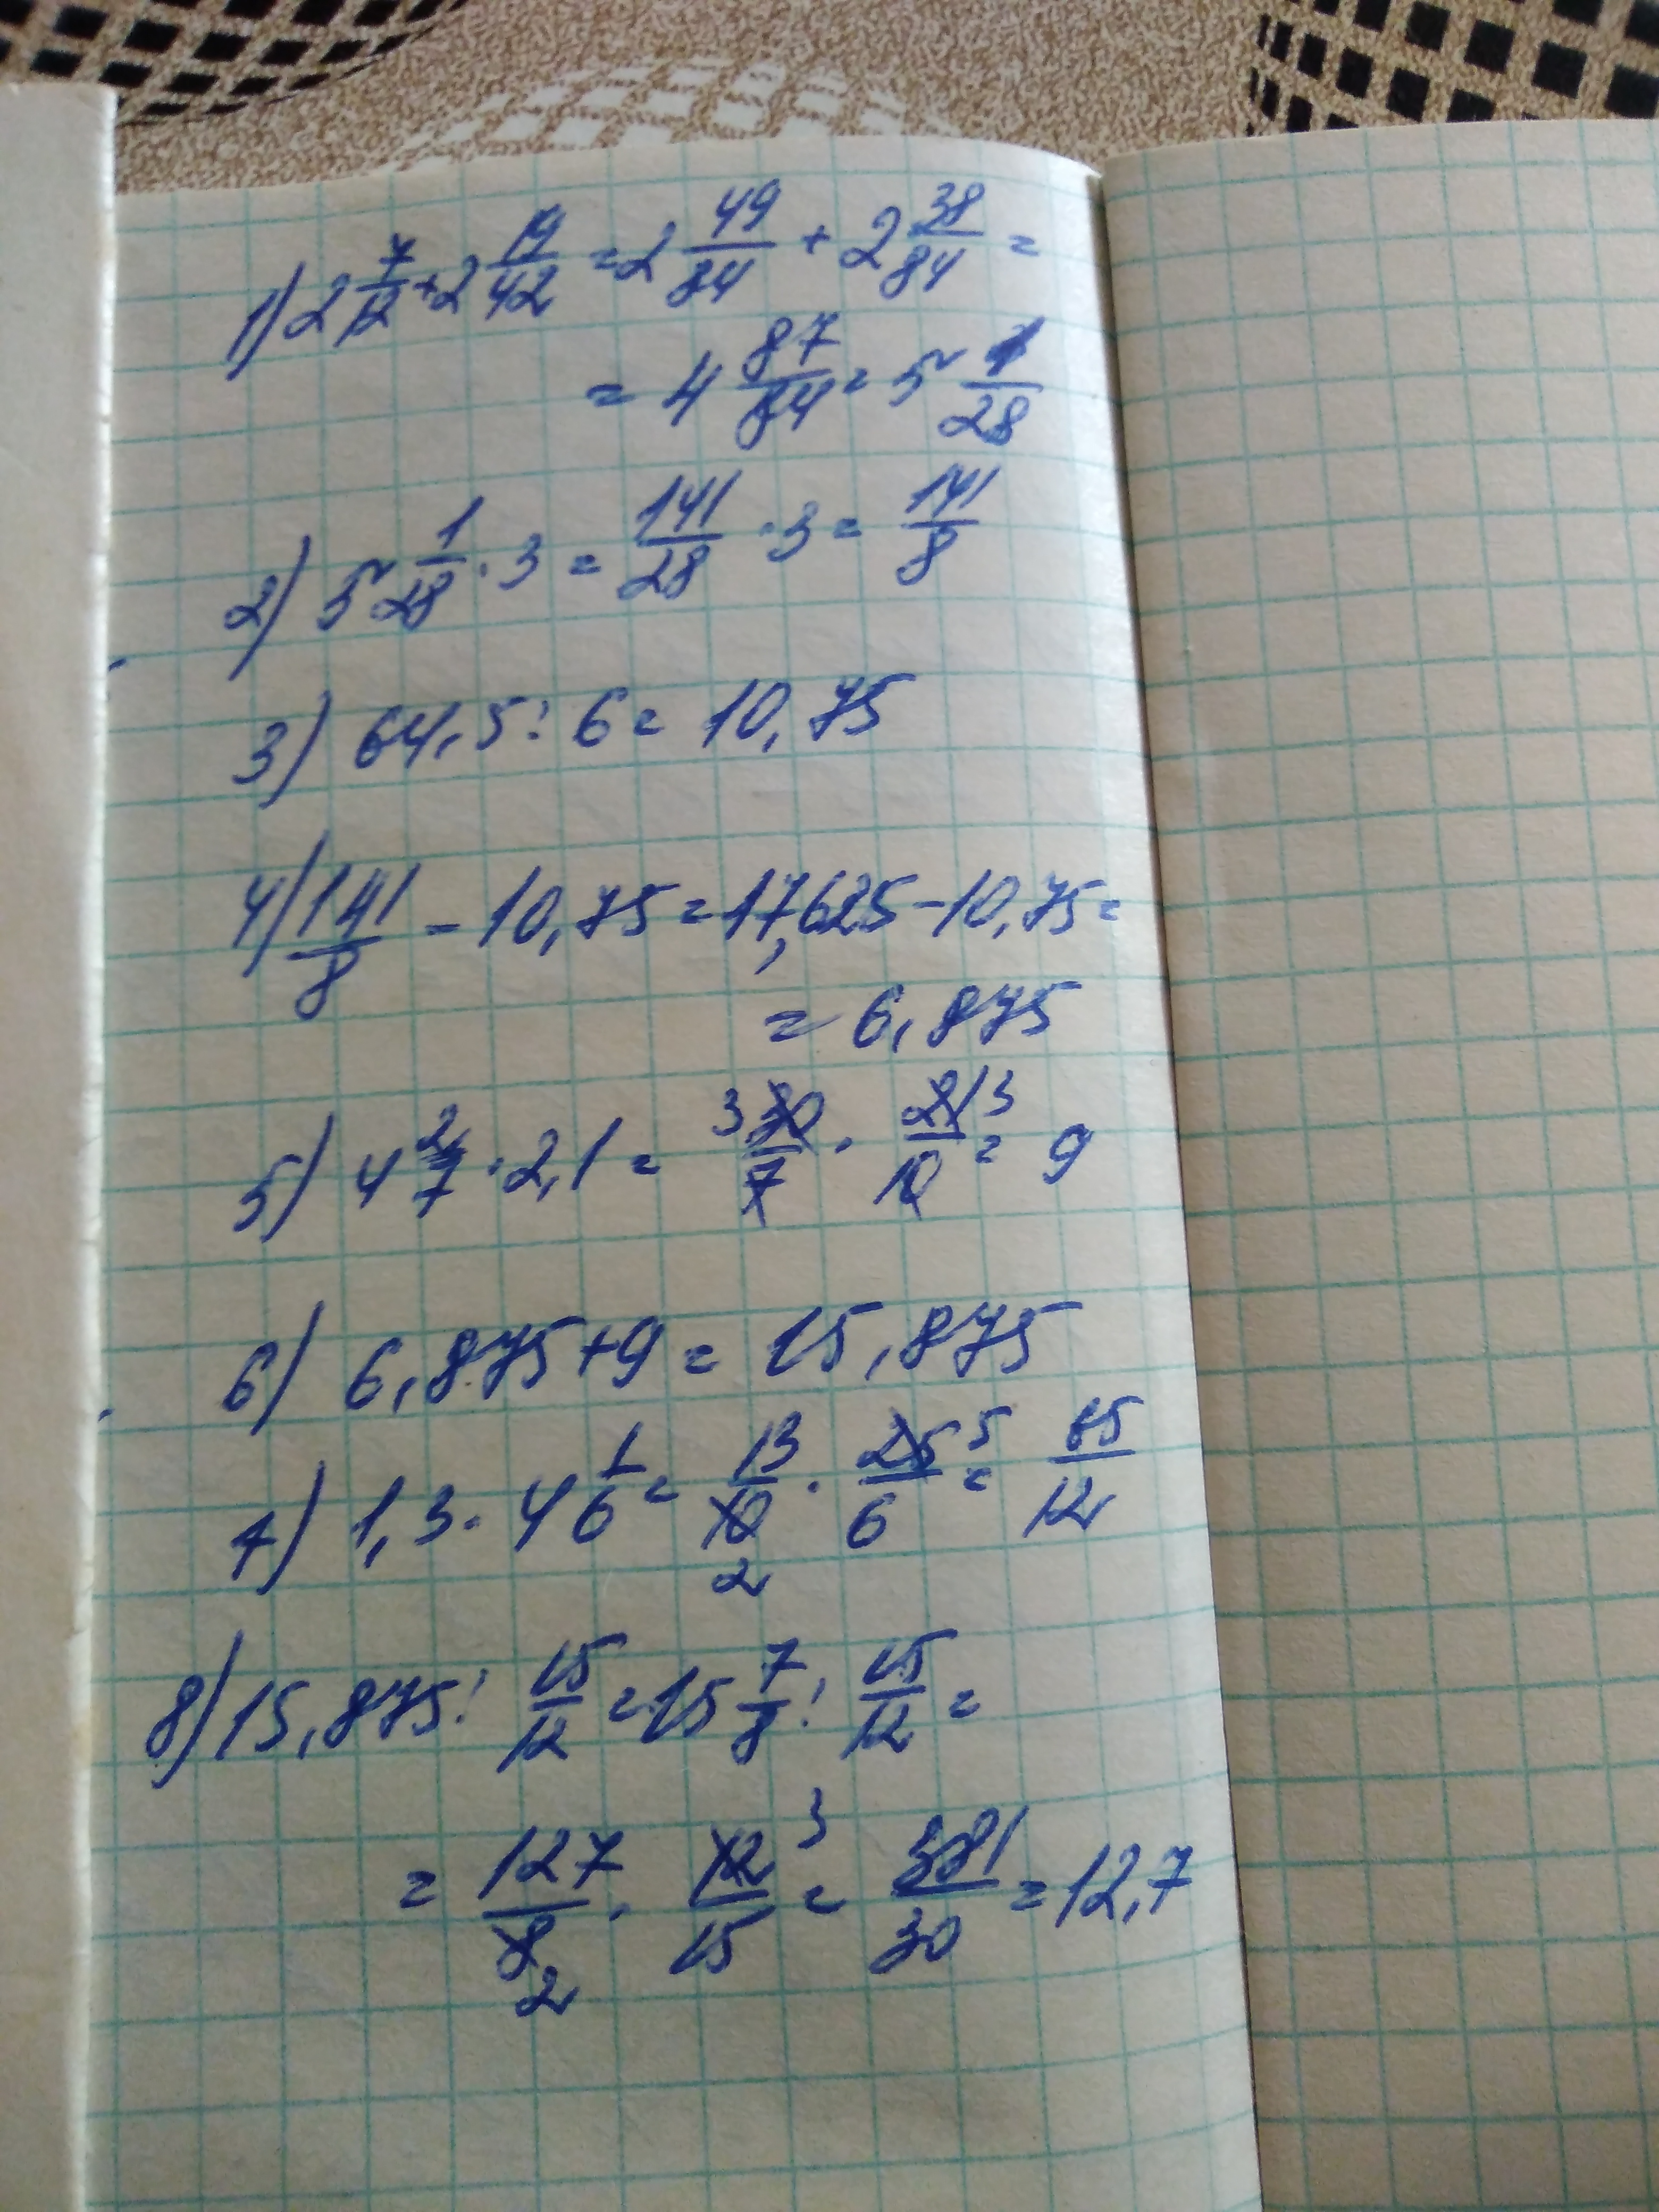 1) 2 7/12 + 2 19/42 = 2 49/84 + 2 38/84 =
= 4 87/84 = 5 1/28
2) 5 1/28 · 3 = 141/28 · 3 = 141/8
3) 64,5 : 6 = 10,75
4) 141/8 - 10,75 = 17,625 - 10,75 =
= 6,875
5) 4 2/7 · 2,1 = 3 30/7 · 21/10 3 = 9
6) 6,875 + 9 = 15,875
7) 1,3 · 4 1/6 = 13/10 · 25/6 5 = 65/12
2
8) 15,875 : 15/12 = 15 7/8 : 15/12 =
= 127/8 · 12/15 3 = 381/30 = 12,7
2